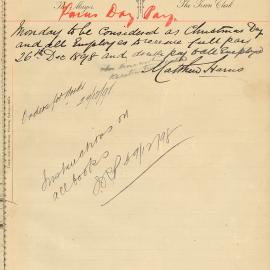 The Mayor. The Town Clerk
Day Pay.
Monday to be Considered as Christmas Day
and all Employes to receive full pay
26th Dec 1898 and double pay to all Employed
Matthew Harris
24/12/98
Instructions on
all books
29/12/98